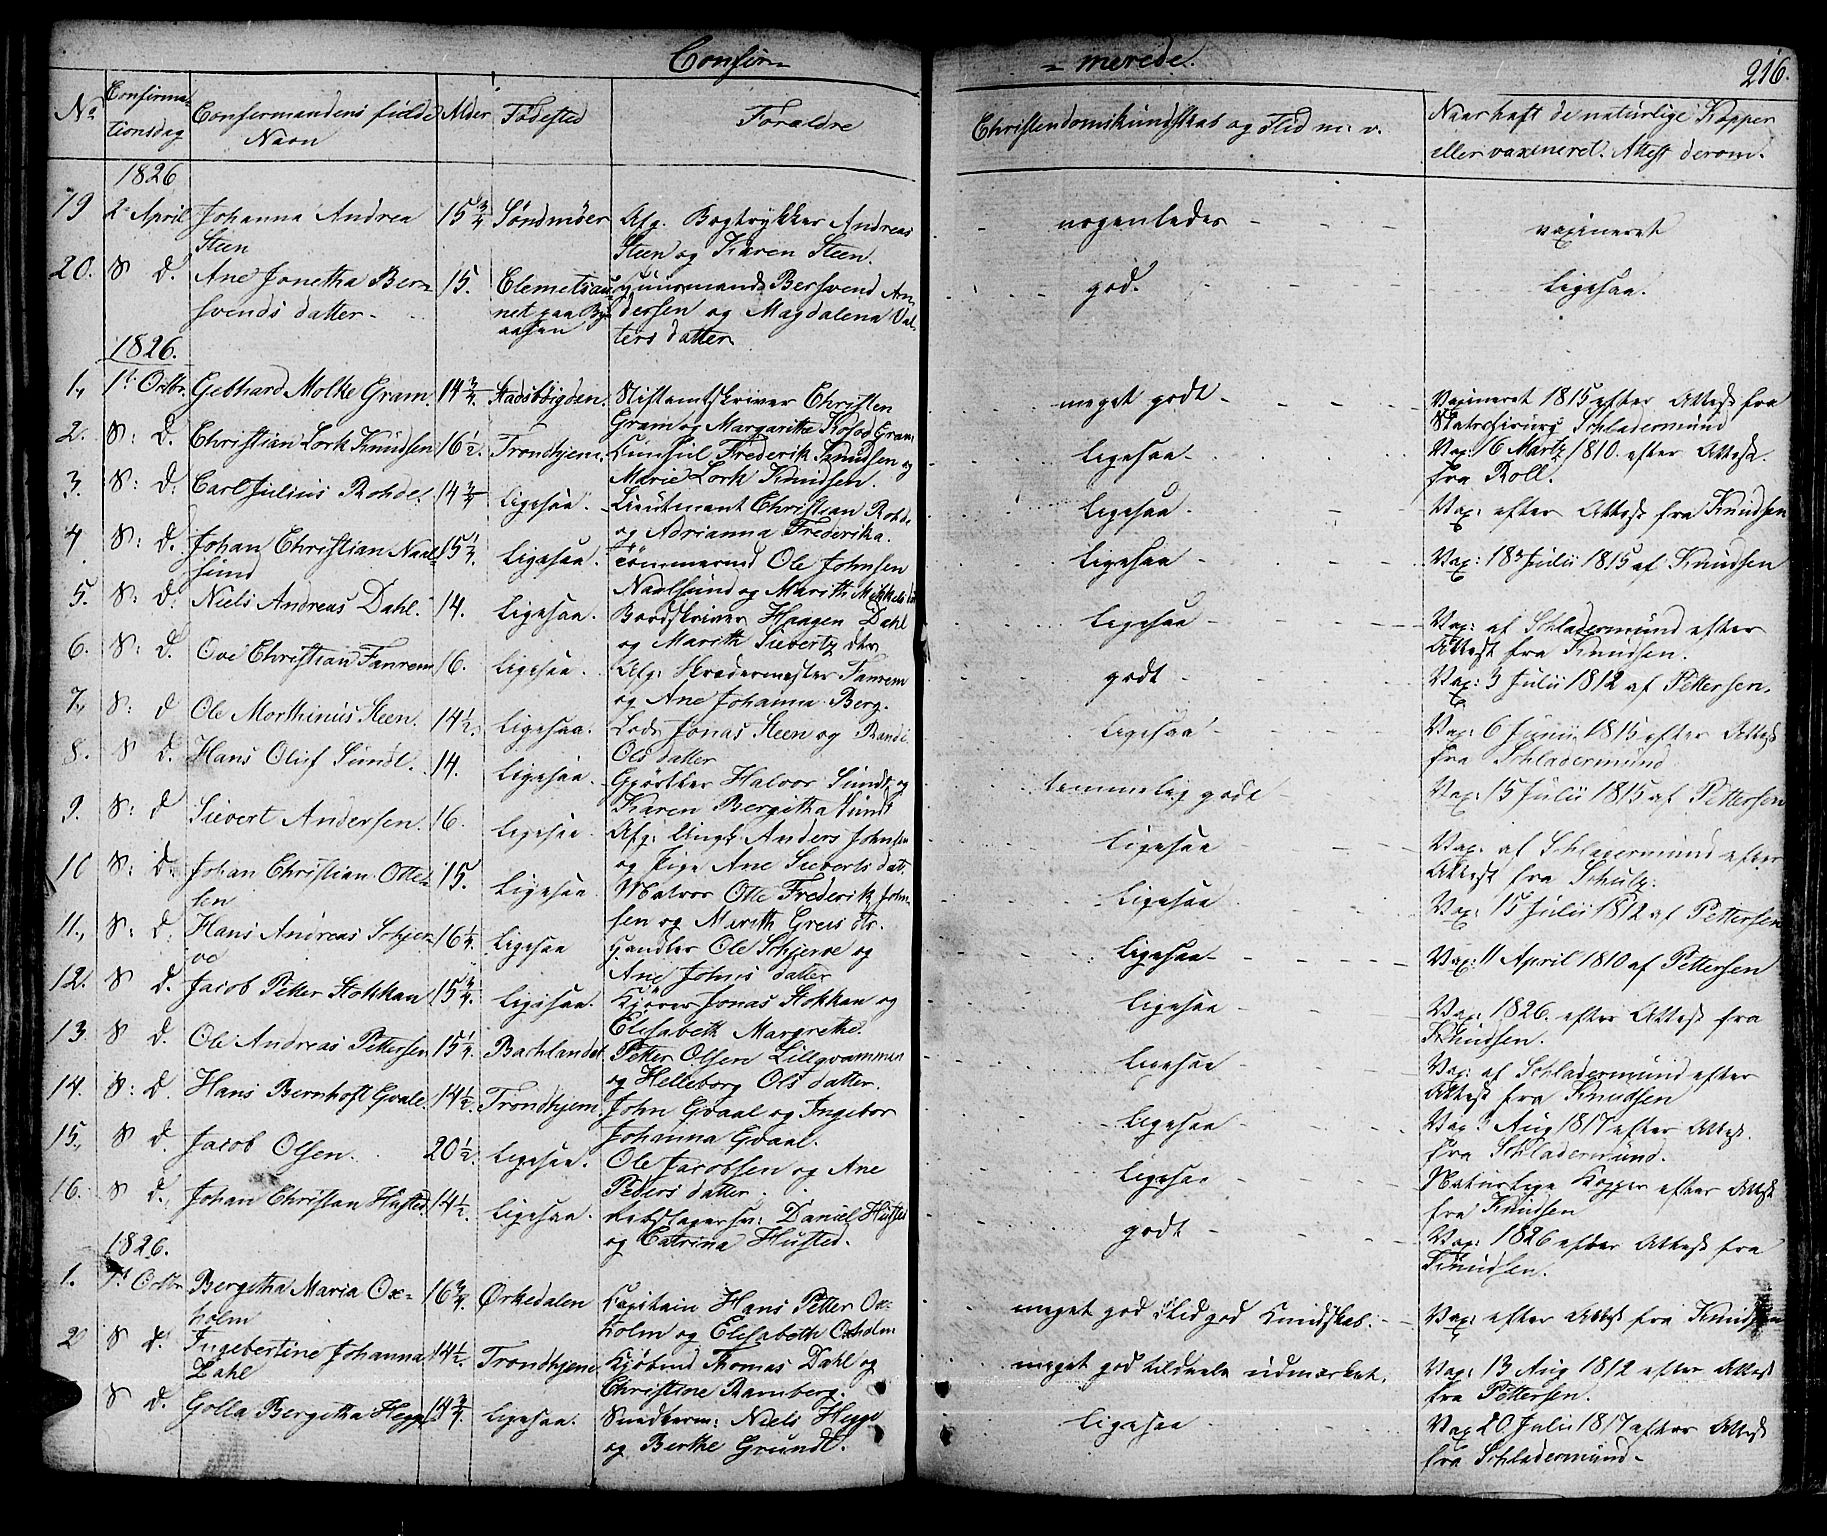 Confir= =merede. 216.
No Confirmationsdag Confirmandens fulde Navn Alder Fødested Forældre Christendomskundskab og Flid m: v. Naar haft de naturlige Kopper eller vaxineret. Attest derom.
1826
19 2 April Johanna Andrea Steen 15 3/4 Søndmøer Afg. Bogtrykker Andreas Steen og Karen Steen. nogenledes vaxineret
20. S D. Ane Jonetha Bersvends datter 15. Elemetsaunet paa Byaasen Huusmand Bersvend Andersen og Magdalena Valters datter god. Ligesaa.
1826.
1. 1t Octbr. Gebhard Molke Gram. 14 3/4. Stadsbøigden. Stiftamtskriver Christen Gram og Margarithe Kosod Gram meget godt Vaxineret 1815 efter Attest fra Stabschirurg Schladermund
2. S: D. Christian Lork Knudsen 16 1/2. Trondhjem. Consul Frederik Knudsen og Marie Lork Knudsen. Ligesaa Vax: 16 Martz 1810. efter Attest fra Roll.
3. S: D: Carl Julius Rohde. 14 3/4 Ligesaa Lieutenant Christian Rohde og Adrianna Frederika. Ligesaa. Vax: efter Attest fra Knudsen
4 S: D. Johan Christian Naalsund 15 1/2. Ligesaa Tømmermd Ole Johnsen Naalsund og Marith Mikkelsd Ligesaa Vax: 18 Julii 1815 af Knudsen
5. S: D: Niels Andreas Dahl. 14. Ligesaa. Bordskriver Haagen Dahl og Marith Sievertz dtr. Ligesaa Vax: af Schladermund efter Attest fra Knudsen.
6. S: D. Ove Christian Fanrem 16. Ligesaa. Afg: Skrædermester Fanrem og Ane Johanna Berg. godt Vax: 3 Julii 1812 af Pettersen.
7. S: D Ole Morthinus Steen. 14 1/2. Ligesaa. Lods Jonas Steen og Randi Ols datter Ligesaa Vax: 6 Junii 1815 efter Attest fra Schladermund
8. S D. Hans Oluf Sundt. 14. Ligesaa. Gjørtler Halvor Sundt og Karen Bergitha Sundt temmelig godt Vax: 15 Julii 1815 af Pettersen
9. S: D Sievert Andersen. 16. Ligesaa. Afg: Ungk: Anders Johnsen og Pige Ane Sieverts datr. Ligesaa Vax: af Schladermund efter Attest fra Schulz.
10 S: D. Johan Christian Ottesen 15. Ligesaa. Matros Otte Frederik Johnsen og Marith Greis dtr. Ligesaa Vax: 15 Julii 1812 af Pettersen
11. S: D. Hans Andreas Schjerve 16 1/4. Ligesaa Handler Ole Schjerve og Ane Johns datter Ligesaa Vax: 11 April 1810 af Pettersen
12. S D. Jacob Peter Stokkan 15 3/4. Ligesaa. Kjører Jonas Stokkan og Elisabeth Margrethe. Ligesaa Vax: 1826. efter Attest fra Knudsen.
13. S D. Ole Andreas Pettersen 15 1/2. Bachlandet Peter Olsen Lillegvammen og Helleborg Ols datter. Ligesaa Vax: af Schladermund efter Attest fra Knudsen
14. S: D. Hans Bernhoft Gvale 14 1/2. Trondhjem. John Gvaal og Ingebor Johanna Gvaal. Ligesaa Vax Aug 1817 efter Attest fra Schladermund.
15. S D. Jacob Olsen. 20 1/2. Ligesaa. Ole Jacobsen og Ane Peders datter. Ligesaa Naturlige Kopper efter Attest fra Knudsen
16. S D. Johan Christian Husted. 14 1/2. Ligesaa. Rebslagersv: Daniel Husted og Catrina Husted. godt Vax: 1826 efter Attest fra Knudsen.
1826.
1. 1t Octbr Bergitha Maria Oxholm 16 3/4. Ørkedalen Capitain Hans Petter Oxholm og Elisabeth Oxholm meget god Flid god Kundskab. Vax: efter Attest fra Knudsen
2 S D. Ingebertine Johanna Dahl 14 1/2. Trondhjem Kjøbmd Thomas Dahl og Christine Ramberg. meget god tildeels udmærket. Vax: 13 Aug 1812 efter Attest fra Pettersen.
S D. Golla Bergitha Hegge 14 3/4. Ligesaa. Snedkerm: Niels Hegge og Berthe Grundt. Ligesaa Vax 20 Julii 1817 efter Attest fra Schladermund